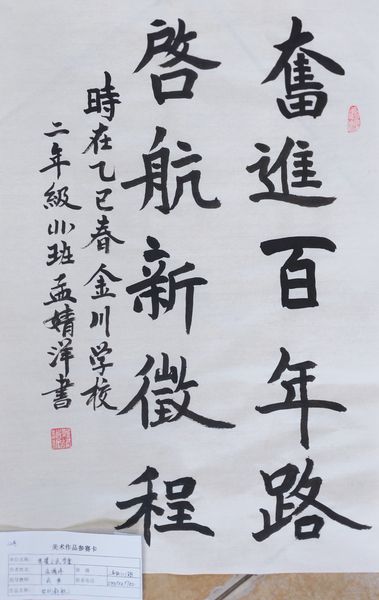 奮進百年路
啓航新徵程
時在乙巳春金川学校
二年級小班孟婧洋書
美术作品参赛卡